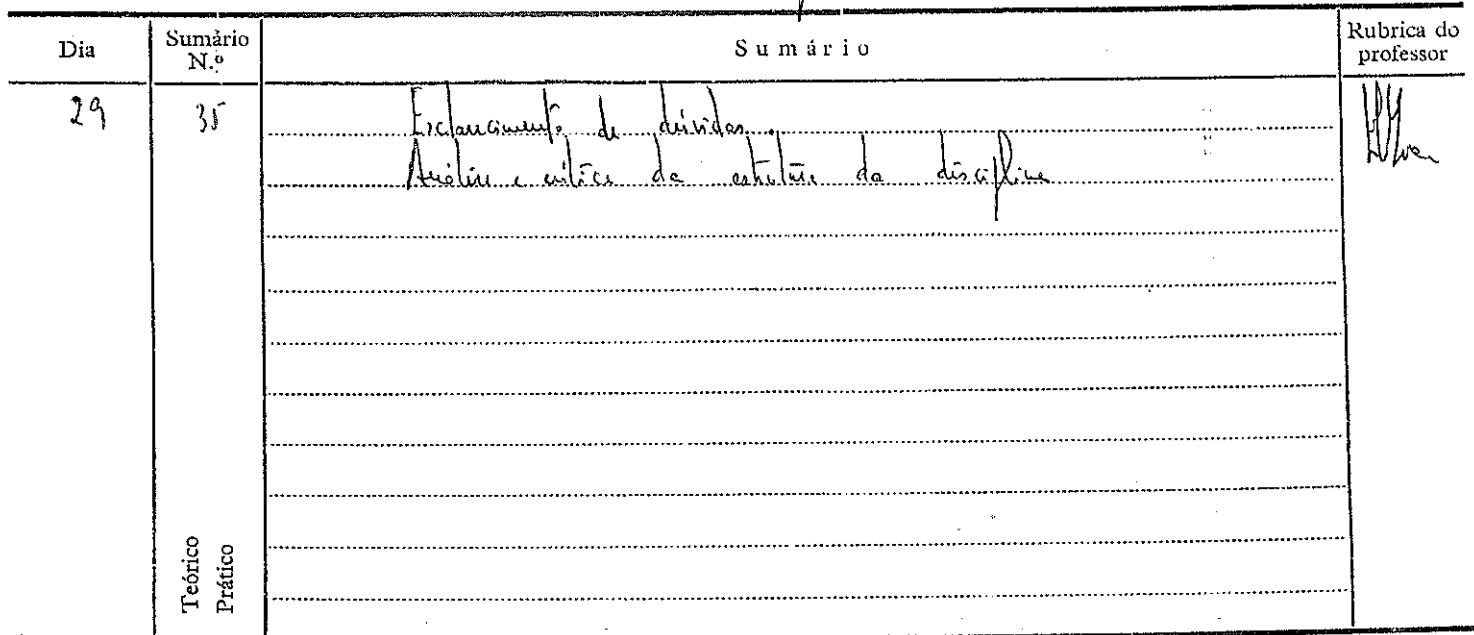 Dia
Sumário
N.º
Sumário
Rubrica do
professor
29
35
Esclarecimento de dúvidas.
Análise e crítica da estrutura da disciplina
Teórico
Prático